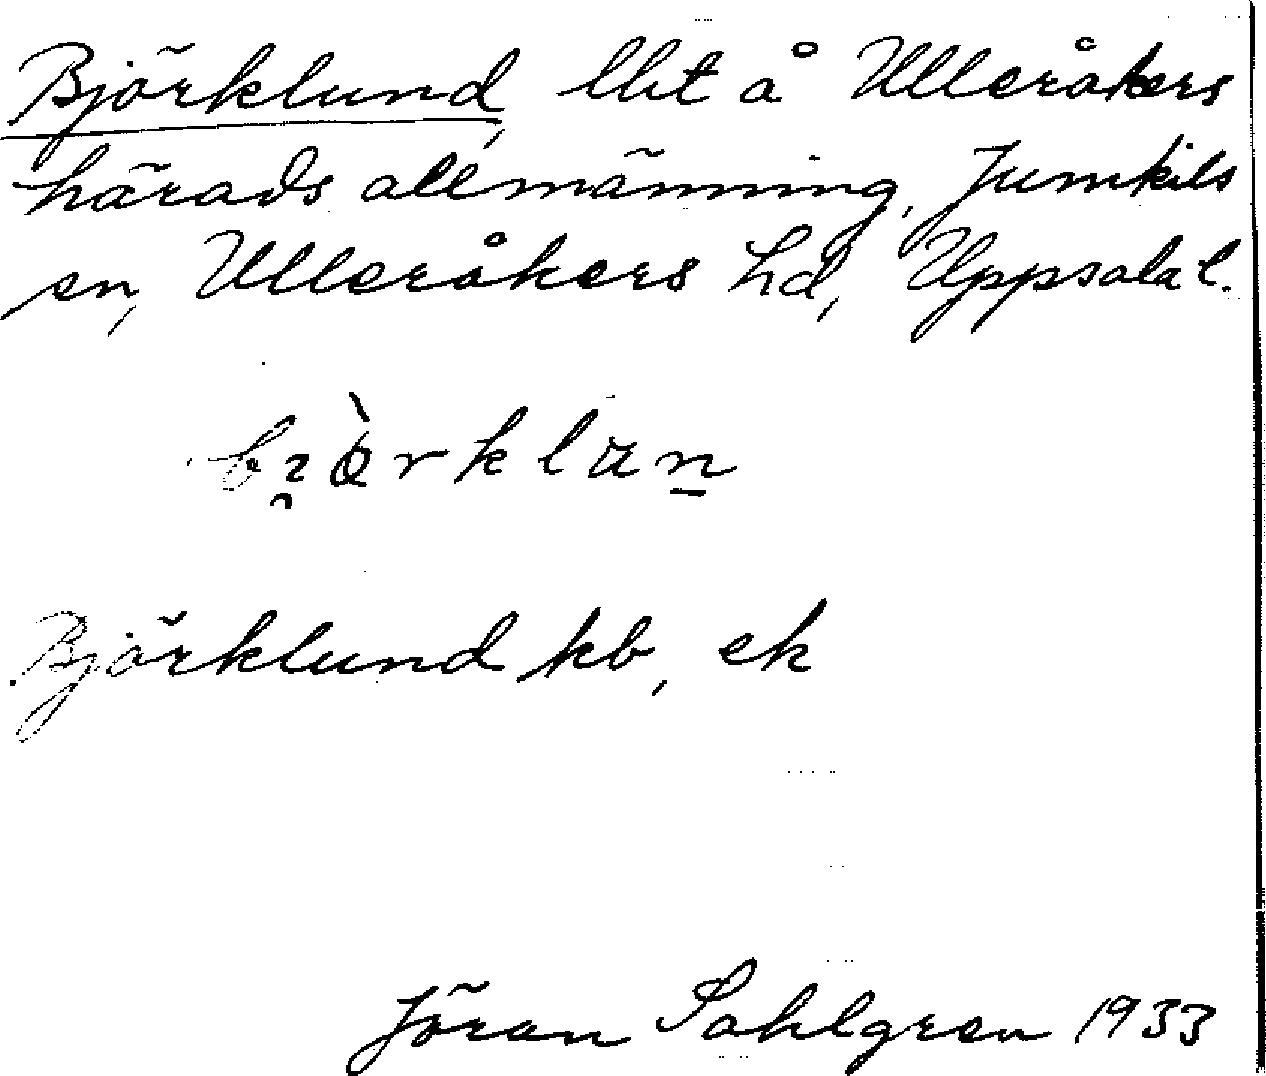 Björklund, llit å Ulleråkers
härads allmänning, Jumkils
sn, Ulleråkers hd, Uppsala l.
Björklund kb, ek
Jöran Sahlgren 1933